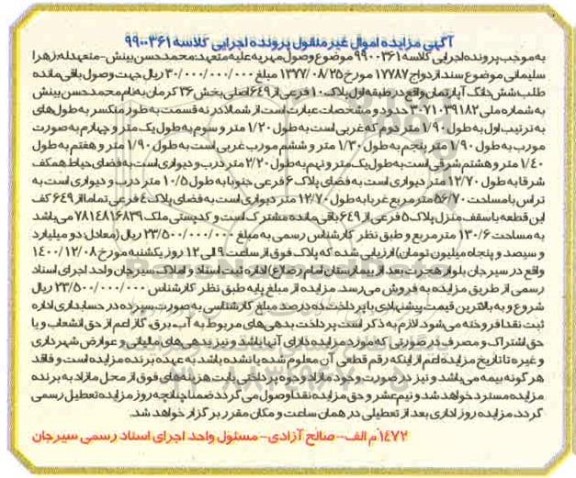 آگهی مزایده اموال غیر منقول پرونده اجرایی کلاسه ۹۹۰۰۳۶۱
به موجب پرونده اجرایی کلاسه ۹۹۰۰۳۶۱ موضوع وصول مهریه علیه متعهد: محمدحسن بینش - متعهدله: زهرا
سلیمانی موضوع سند ازدواج ۱۷۷۸۷ مورخ ۱۳۷۷/۰۸/۲۵ مبلغ ۳۰/۰۰۰/۰۰۰/۰۰۰ ریال جهت وصول باقی مانده
طلب شش دانگ آپارتمان واقع در طبقه اول پلاک ۱۰ فرعی از ۶۴۹ اصلی بخش ۳۶ کرمان به نام محمدحسن بینش
به شماره ملی ۳۰۷۱۰۳۹۱۸۲ حدود و مشخصات عبارت است از شمالا در نه قسمت به طور منکسر به طول های
به ترتیب اول به طول ۱/۹۰ متر دوم که غربی است به طول ۱/۲۰ متر و سوم به طول یک متر و چهارم به صورت
مورب به طول ۱/۹۰ متر پنجم به طول ۱/۳۰ متر و ششم مورب غربی است به طول ۱/۹۰ متر و هفتم به طول
۱/۴۰ متر و هشتم شرقی است به طول یک متر و نهم به طول ۲/۲۰ متر درب و دیواری است به فضای حیاط همکف
شرقا به طول ۱۲/۷۰ متر دیواری است به فضای پلاک ۶ فرعی جنوبا به طول ۱۰/۵ متر درب و دیواری است به
تراس با مساحت ۵۶/۷۰ متر مربع غربا به طول ۱۲/۷۰ متر دیواری است به فضای پلاک ۴ فرعی تماما از ۶۴۹ کف
این قطعه با سقف منزل پلاک ۵ فرعی از ۶۴۹ باقی مانده مشترک است و کد پستی ملک ۷۸۱۴۸۱۶۸۳۹ می باشد
به مساحت ۱۳۰/۶ متر مربع و طبق نظر کارشناس رسمی به مبلغ ۲۳/۵۰۰/۰۰۰/۰۰۰ ریال (معادل: دو میلیارد
و سیصد و پنجاه میلیون تومان) ارزیابی شده که پلاک فوق از ساعت ۹ الی ۱۲ روز یکشنبه مورخ ۱۴۰۰/۱۲/۰۸
واقع در سیرجان بلوار هجرت بعد از بیمارستان امام رضا(ع) اداره ثبت اسناد و املاک سیرجان واحد اجرای اسناد
رسمی از طریق مزایده به فروش می رسد. مزایده از مبلغ پایه طبق نظر کارشناس ۲۳/۵۰۰/۰۰۰/۰۰۰ ریال
شروع و به بالاترین قیمت پیشنهادی با پرداخت ده درصد مبلغ کارشناسی به صورت سپرده در حسابداری اداره
ثبت نقدا فروخته می شود. لازم به ذکر است پرداخت بدهی های مربوط به آب، برق، گاز اعم از حق انشعاب و یا
حق اشتراک و مصرف در صورتی که مورد مزایده دارای آنها باشد و نیز بدهی های مالیاتی و عوارض شهرداری
و غیره تا تاریخ مزایده اعم از اینکه رقم قطعی آن معلوم شده یا نشده باشد به عهده برنده مزایده است و فاقد
هر گونه بیمه می باشد و نیز در صورت وجود مازاد وجوه پرداختی بابت هزینه های فوق از محل مازاد به برنده
مزایده مسترد خواهد شد و نیم عشر و حق مزایده نقدا وصول می گردد ضمنا چنانچه روز مزایده تعطیل رسمی
گردد، مزایده روز اداری بعد از تعطیلی در همان ساعت و مکان مقرر برگزار خواهد شد.
۱۴۷۲م الف - صالح آزادی - مسئول واحد اجرای اسناد رسمی سیرجان